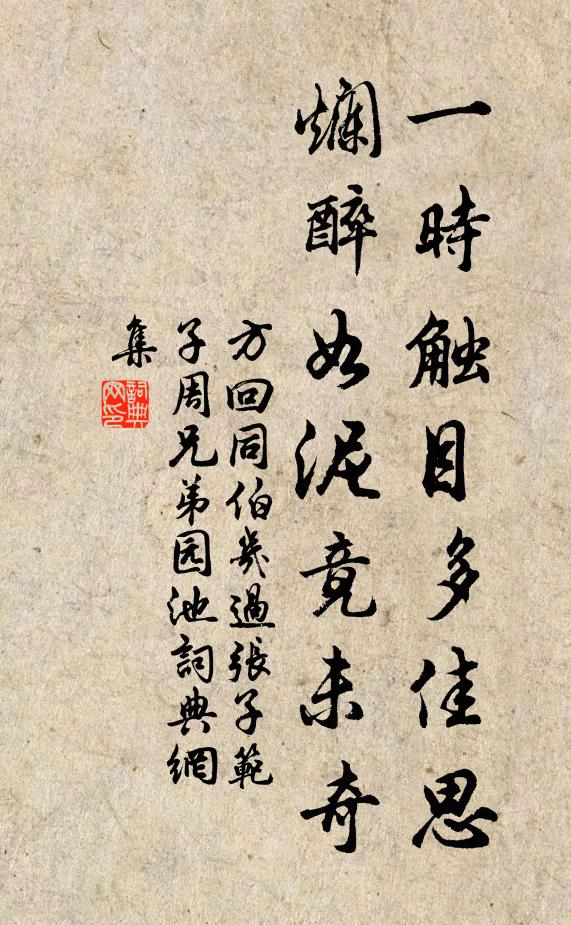 一時触目多佳思
爛醉如泥竟未奇
方回同伯幾過張子範
子周兄弟园池詞典網
集
詞典网印